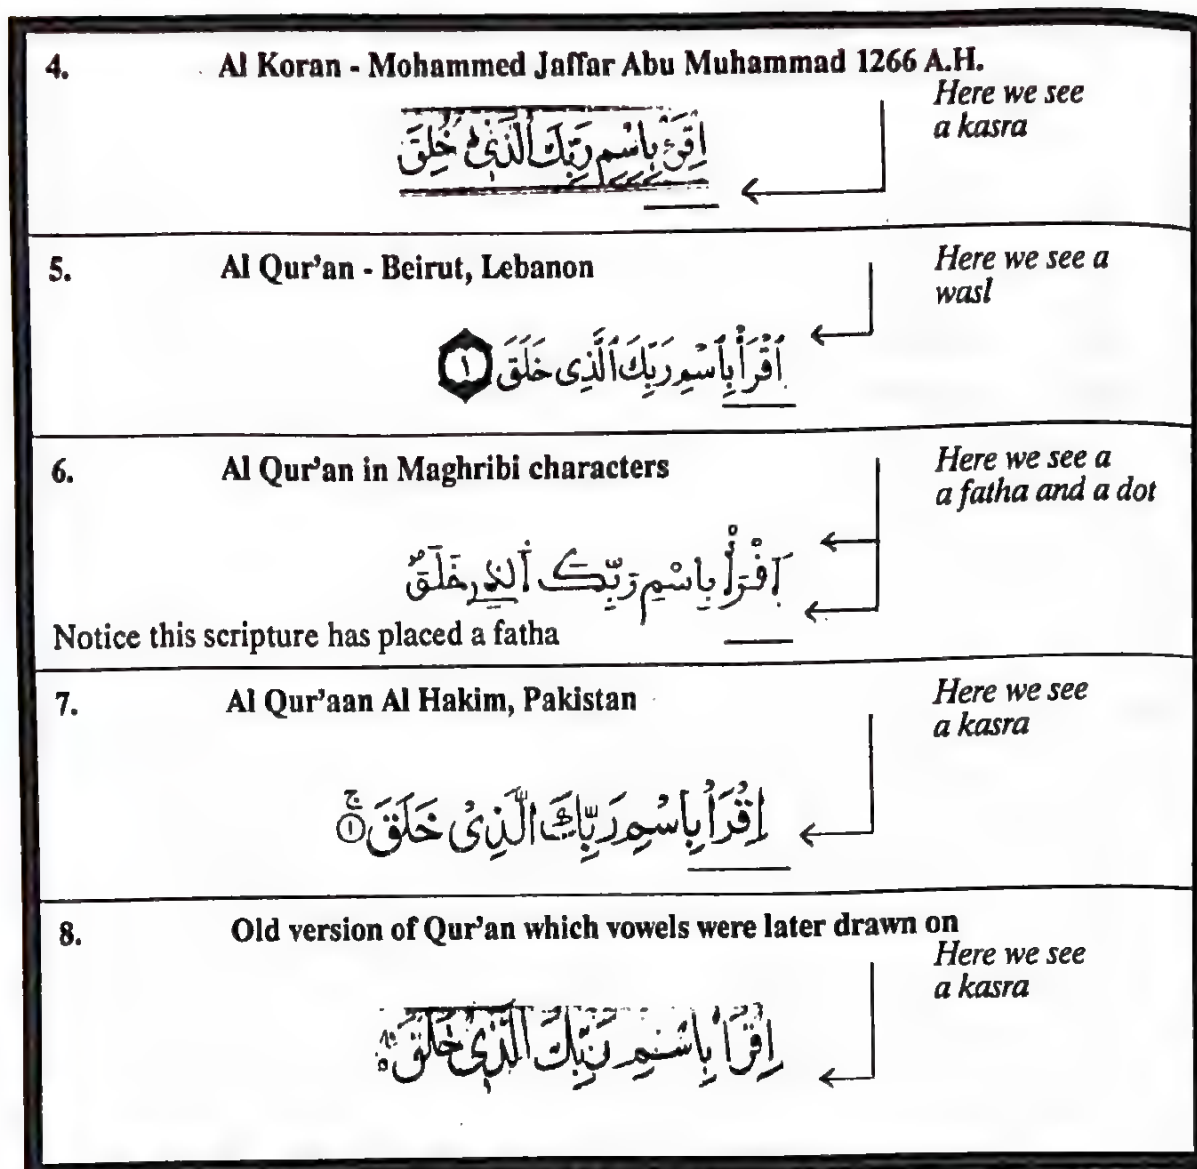 4. Al Koran - Mohammed Jaffar Abu Muhammad 1266 A.H.
Here we see
a kasra
اِقْرَءْ بِاسْمِ رَبِّكَ الَّذِىْ خَلَقَ
5. Al Qur'an - Beirut, Lebanon
Here we see a
wasl
ٱقْرَأْ بِٱسْمِ رَبِّكَ ٱلَّذِى خَلَقَ ١
6. Al Qur'an in Maghribi characters
Here we see a
a fatha and a dot
اَ۪فْرَأْ بِاسْمِ رَبِّكَ اَ۬لذِے خَلَقَ
Notice this scripture has placed a fatha
7. Al Qur'aan Al Hakim, Pakistan
Here we see
a kasra
اِقْرَاْ بِاسْمِ رَبِّكَ الَّذِىْ خَلَقَ ۚ ١
8. Old version of Qur'an which vowels were later drawn on
Here we see
a kasra
اِقْرَاْ بِاسْمِ رَبِّكَ الَّذِىْ خَلَقَ